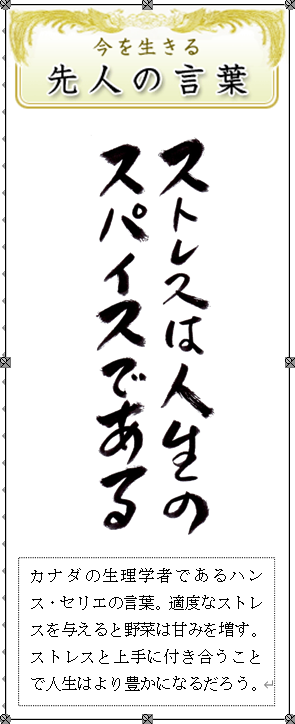 今を生きる
先人の言葉
ストレスは人生の
スパイスである
カナダの生理学者であるハン
ス・セリエの言葉。適度なストレ
スを与えると野菜は甘みを増す。
ストレスと上手に付き合うこと
で人生はより豊かになるだろう。